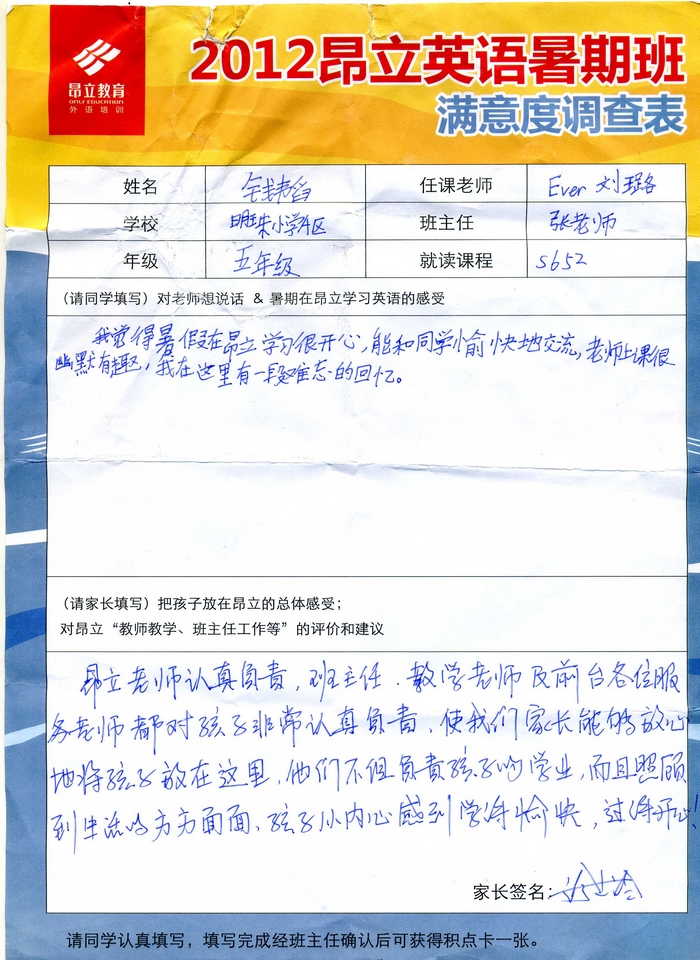 昂立教育
ONLY EDUCATION
外语培训
2012昂立英语暑期班
满意度调查表
姓名 任课老师 Ever 刘璐
学校 明珠小学A区 班主任 张老师
年级 五年级 就读课程 S652
（请同学填写）对老师想说话 & 暑期在昂立学习英语的感受
我觉得暑假在昂立学习很开心，能和同学愉快地交流，老师上课很
幽默有趣，我在这里有一段难忘的回忆。
（请家长填写）把孩子放在昂立的总体感受；
对昂立“教师教学、班主任工作等”的评价和建议
昂立老师认真负责，班主任、教学老师及前台各位服
务老师都对孩子非常认真负责，使我们家长能够放心
地将孩子放在这里，他们不但负责孩子的学业，而且照顾
到生活的方方面面、孩子从内心感到学得愉快，过得开心！
家长签名：
请同学认真填写，填写完成经班主任确认后可获得积点卡一张。